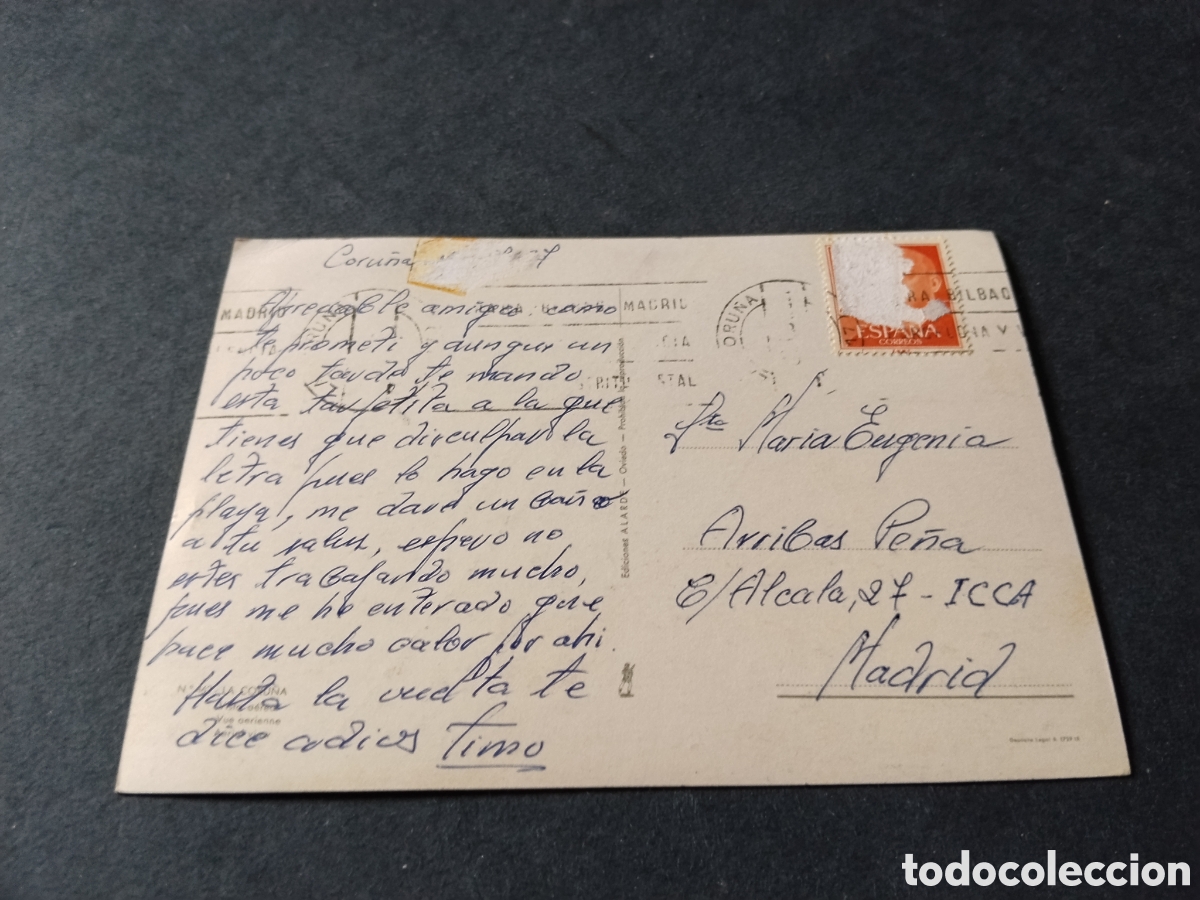 Coruña
Agradable amiga: como
te prometi y aunque un
poco tarde te mando
esta tarjetita a la que
tienes que disculpar la
letra pues lo hago en la
playa, me dare un baño
a tu salud, espero no
estes trabajando mucho,
pues me he enterado que
hace mucho calor por ahi.
Hasta la vuelta te
dice adios Timo
MADRID
CORUÑA
MADRID
ORUÑA
BILBAO
ESPAÑA
CORREOS
Ediciones ALARDE — Oviedo — Prohibida la reproducción
Srta Maria Eugenia
Arribas Peña
C/Alcala, 27 - ICCA
Madrid
LA CORUÑA
Vue aerienne
Deposito Legal
todocoleccion